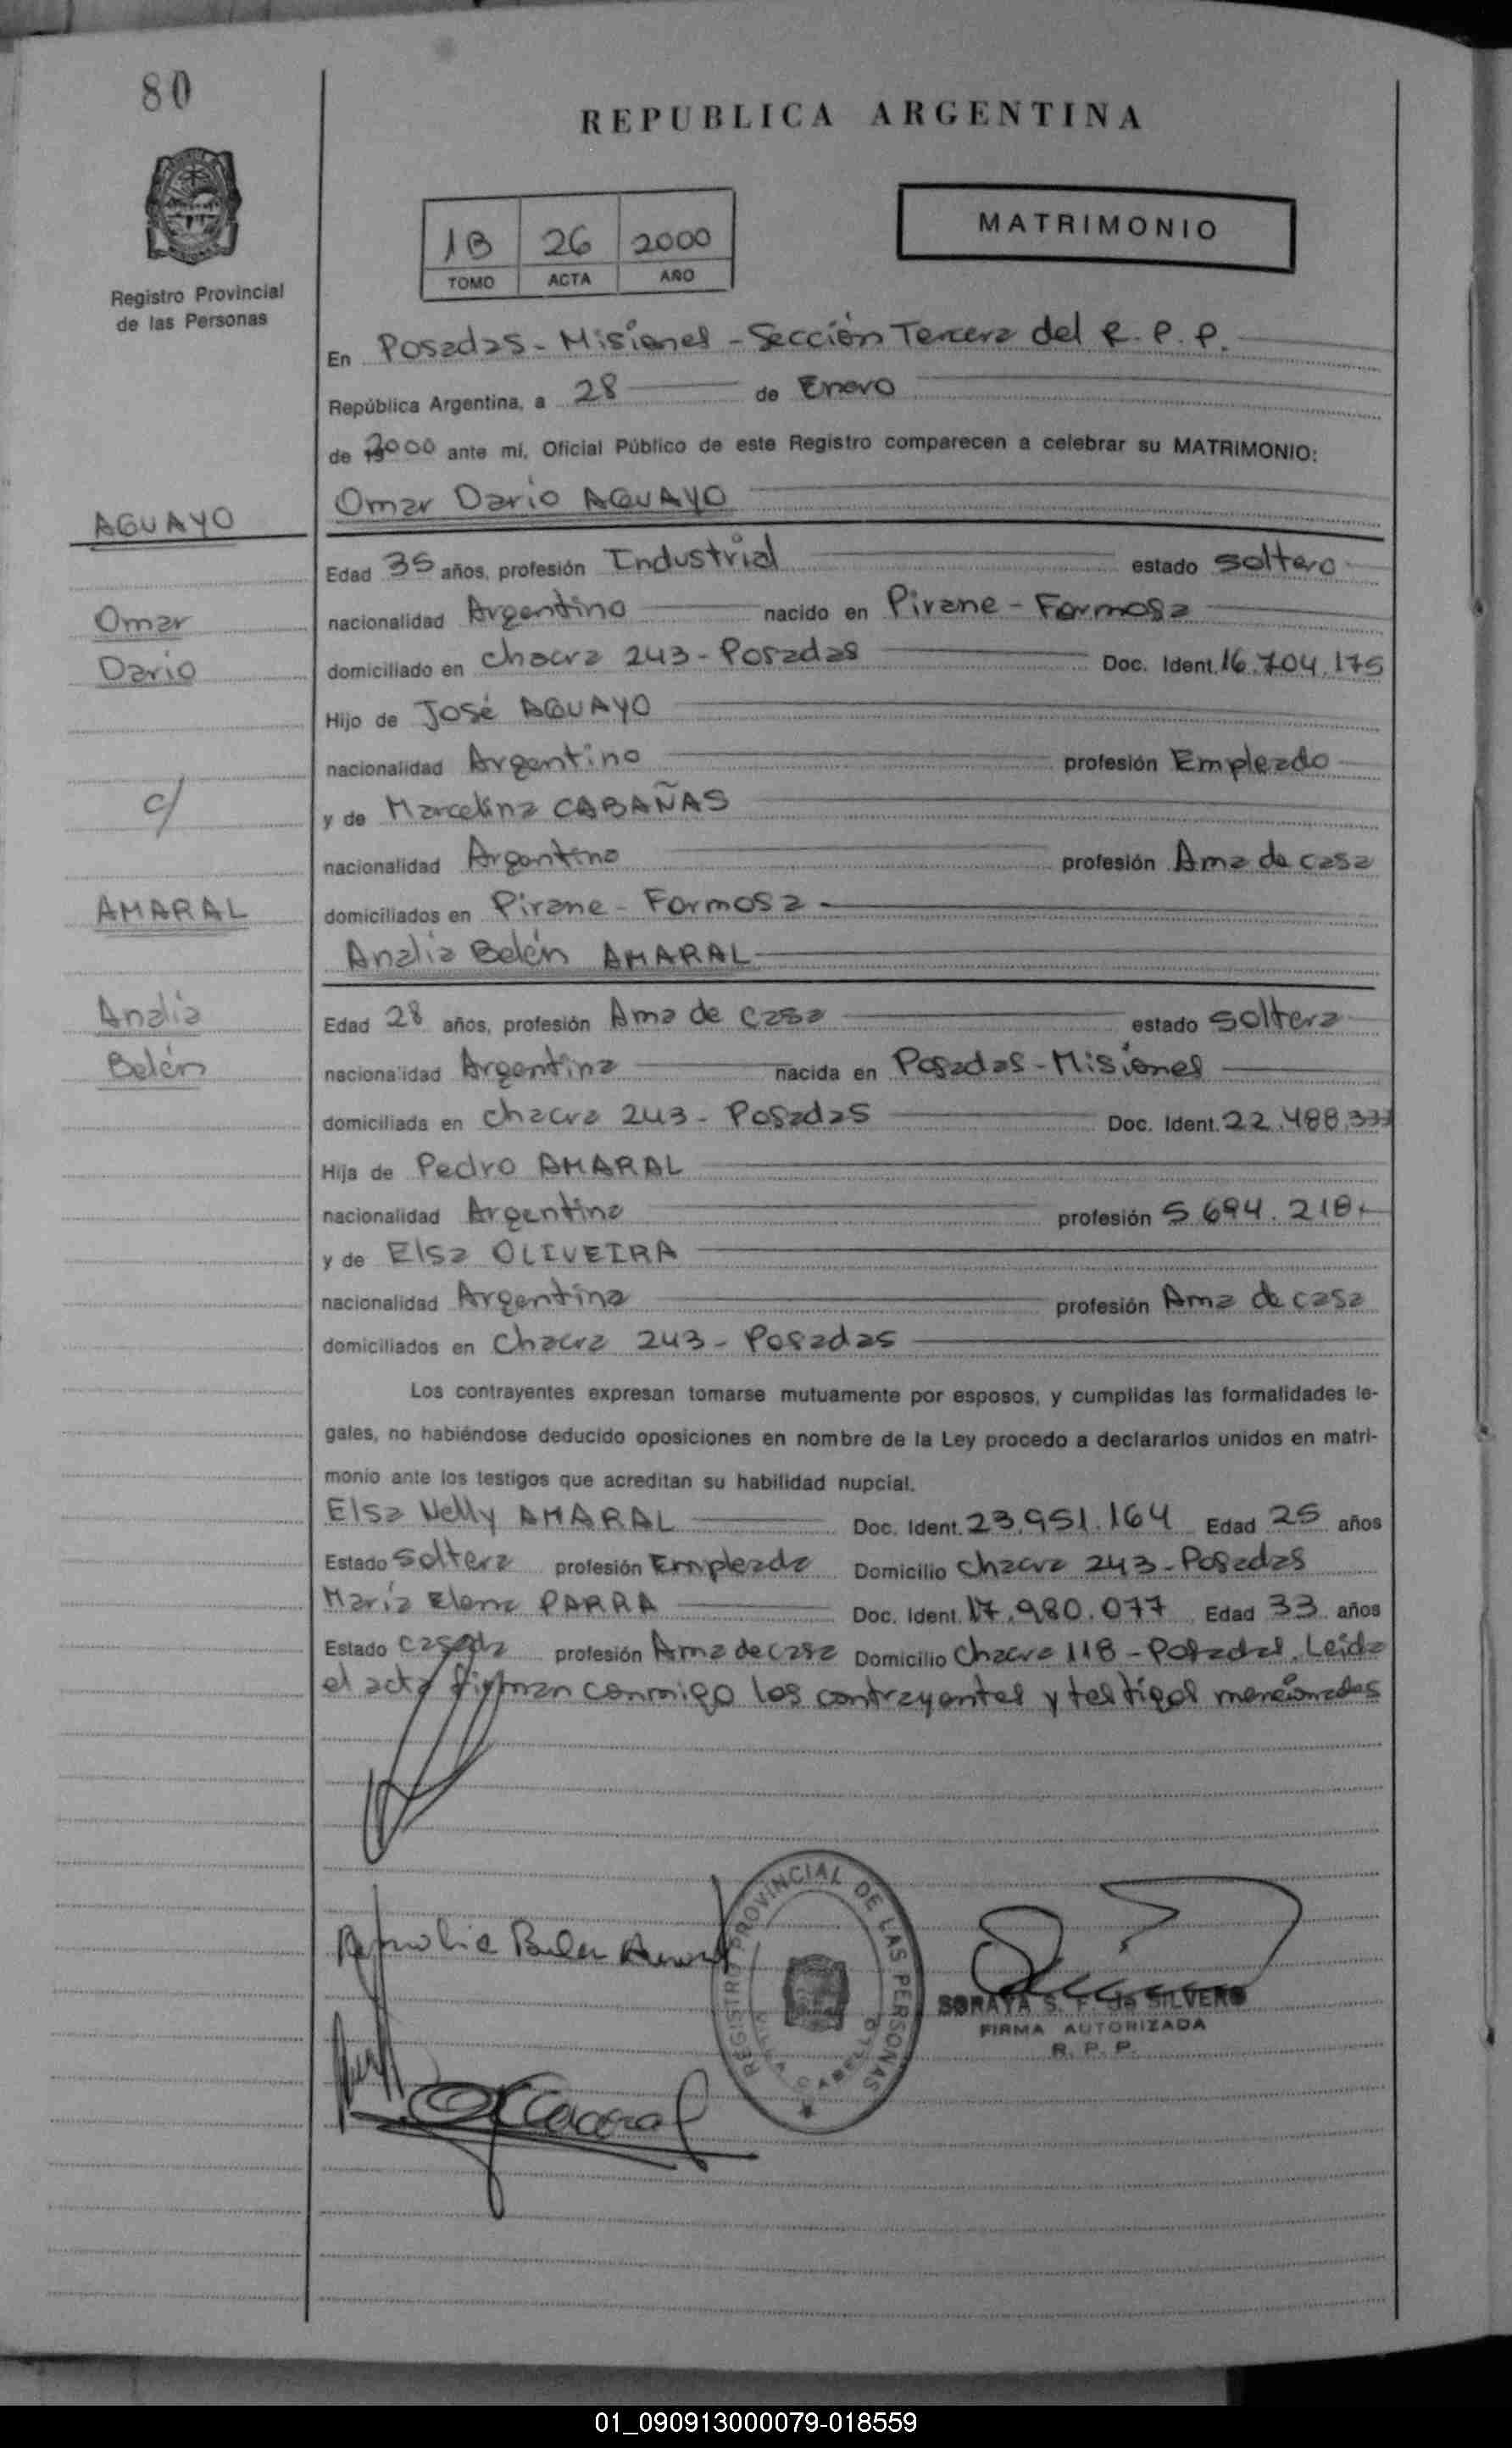 80
REPUBLICA ARGENTINA
1B 26 2000
TOMO ACTA AÑO
MATRIMONIO
Registro Provincial
de las Personas
En Posadas - Misiones - Sección Tercera del R. P. P.
República Argentina, a 28 de Enero
de 2000 ante mí, Oficial Público de este Registro comparecen a celebrar su MATRIMONIO:
AGUAYO
Omar Dario AGUAYO
Edad 35 años, profesión Industrial estado soltero
Omar
nacionalidad Argentino nacido en Pirane - Formosa
Dario
domiciliado en Chacra 243 - Posadas Doc. Ident. 16.704.175
Hijo de José AGUAYO
nacionalidad Argentino profesión Empleado
c/
y de Marcelina CABAÑAS
nacionalidad Argentina profesión Ama de casa
AMARAL
domiciliados en Pirane - Formosa
Analia Belén AMARAL
Analia
Edad 28 años, profesión Ama de casa estado soltera
Belén
nacionalidad Argentina nacida en Posadas - Misiones
domiciliada en Chacra 243 - Posadas Doc. Ident. 22.488.333
Hija de Pedro AMARAL
nacionalidad Argentino profesión 5.694.218
y de Elsa OLIVEIRA
nacionalidad Argentina profesión Ama de casa
domiciliados en Chacra 243 - Posadas
Los contrayentes expresan tomarse mutuamente por esposos, y cumplidas las formalidades le-
gales, no habiéndose deducido oposiciones en nombre de la Ley procedo a declararlos unidos en matri-
monio ante los testigos que acreditan su habilidad nupcial.
Elsa Nelly AMARAL Doc. Ident. 23.951.164 Edad 25 años
Estado Soltera profesión Empleada Domicilio Chacra 243 - Posadas
María Elena PARRA Doc. Ident. 17.980.077 Edad 33 años
Estado casada profesión Ama de casa Domicilio Chacra 118 - Posadas. Leida
el acta firman conmigo los contrayentes y testigos mencionados
REGISTRO PROVINCIAL DE LAS PERSONAS
SORAYA S. F. de SILVERO
FIRMA AUTORIZADA
R. P. P.
01_090913000079-018559